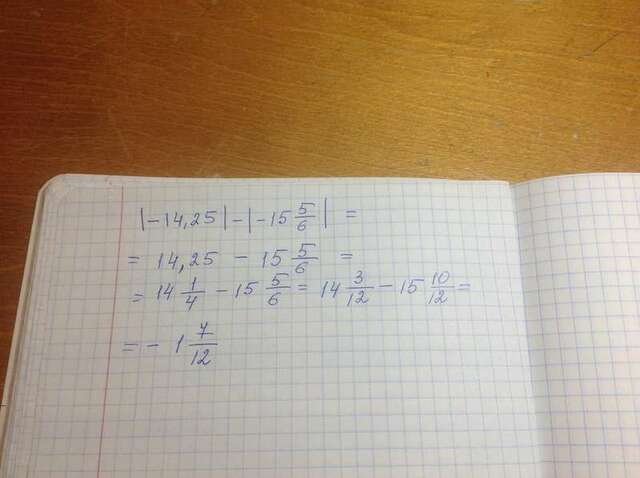 |-14,25|-|-15 5/6| =
= 14,25 - 15 5/6 =
= 14 1/4 - 15 5/6 = 14 3/12 - 15 10/12 =
= - 1 7/12